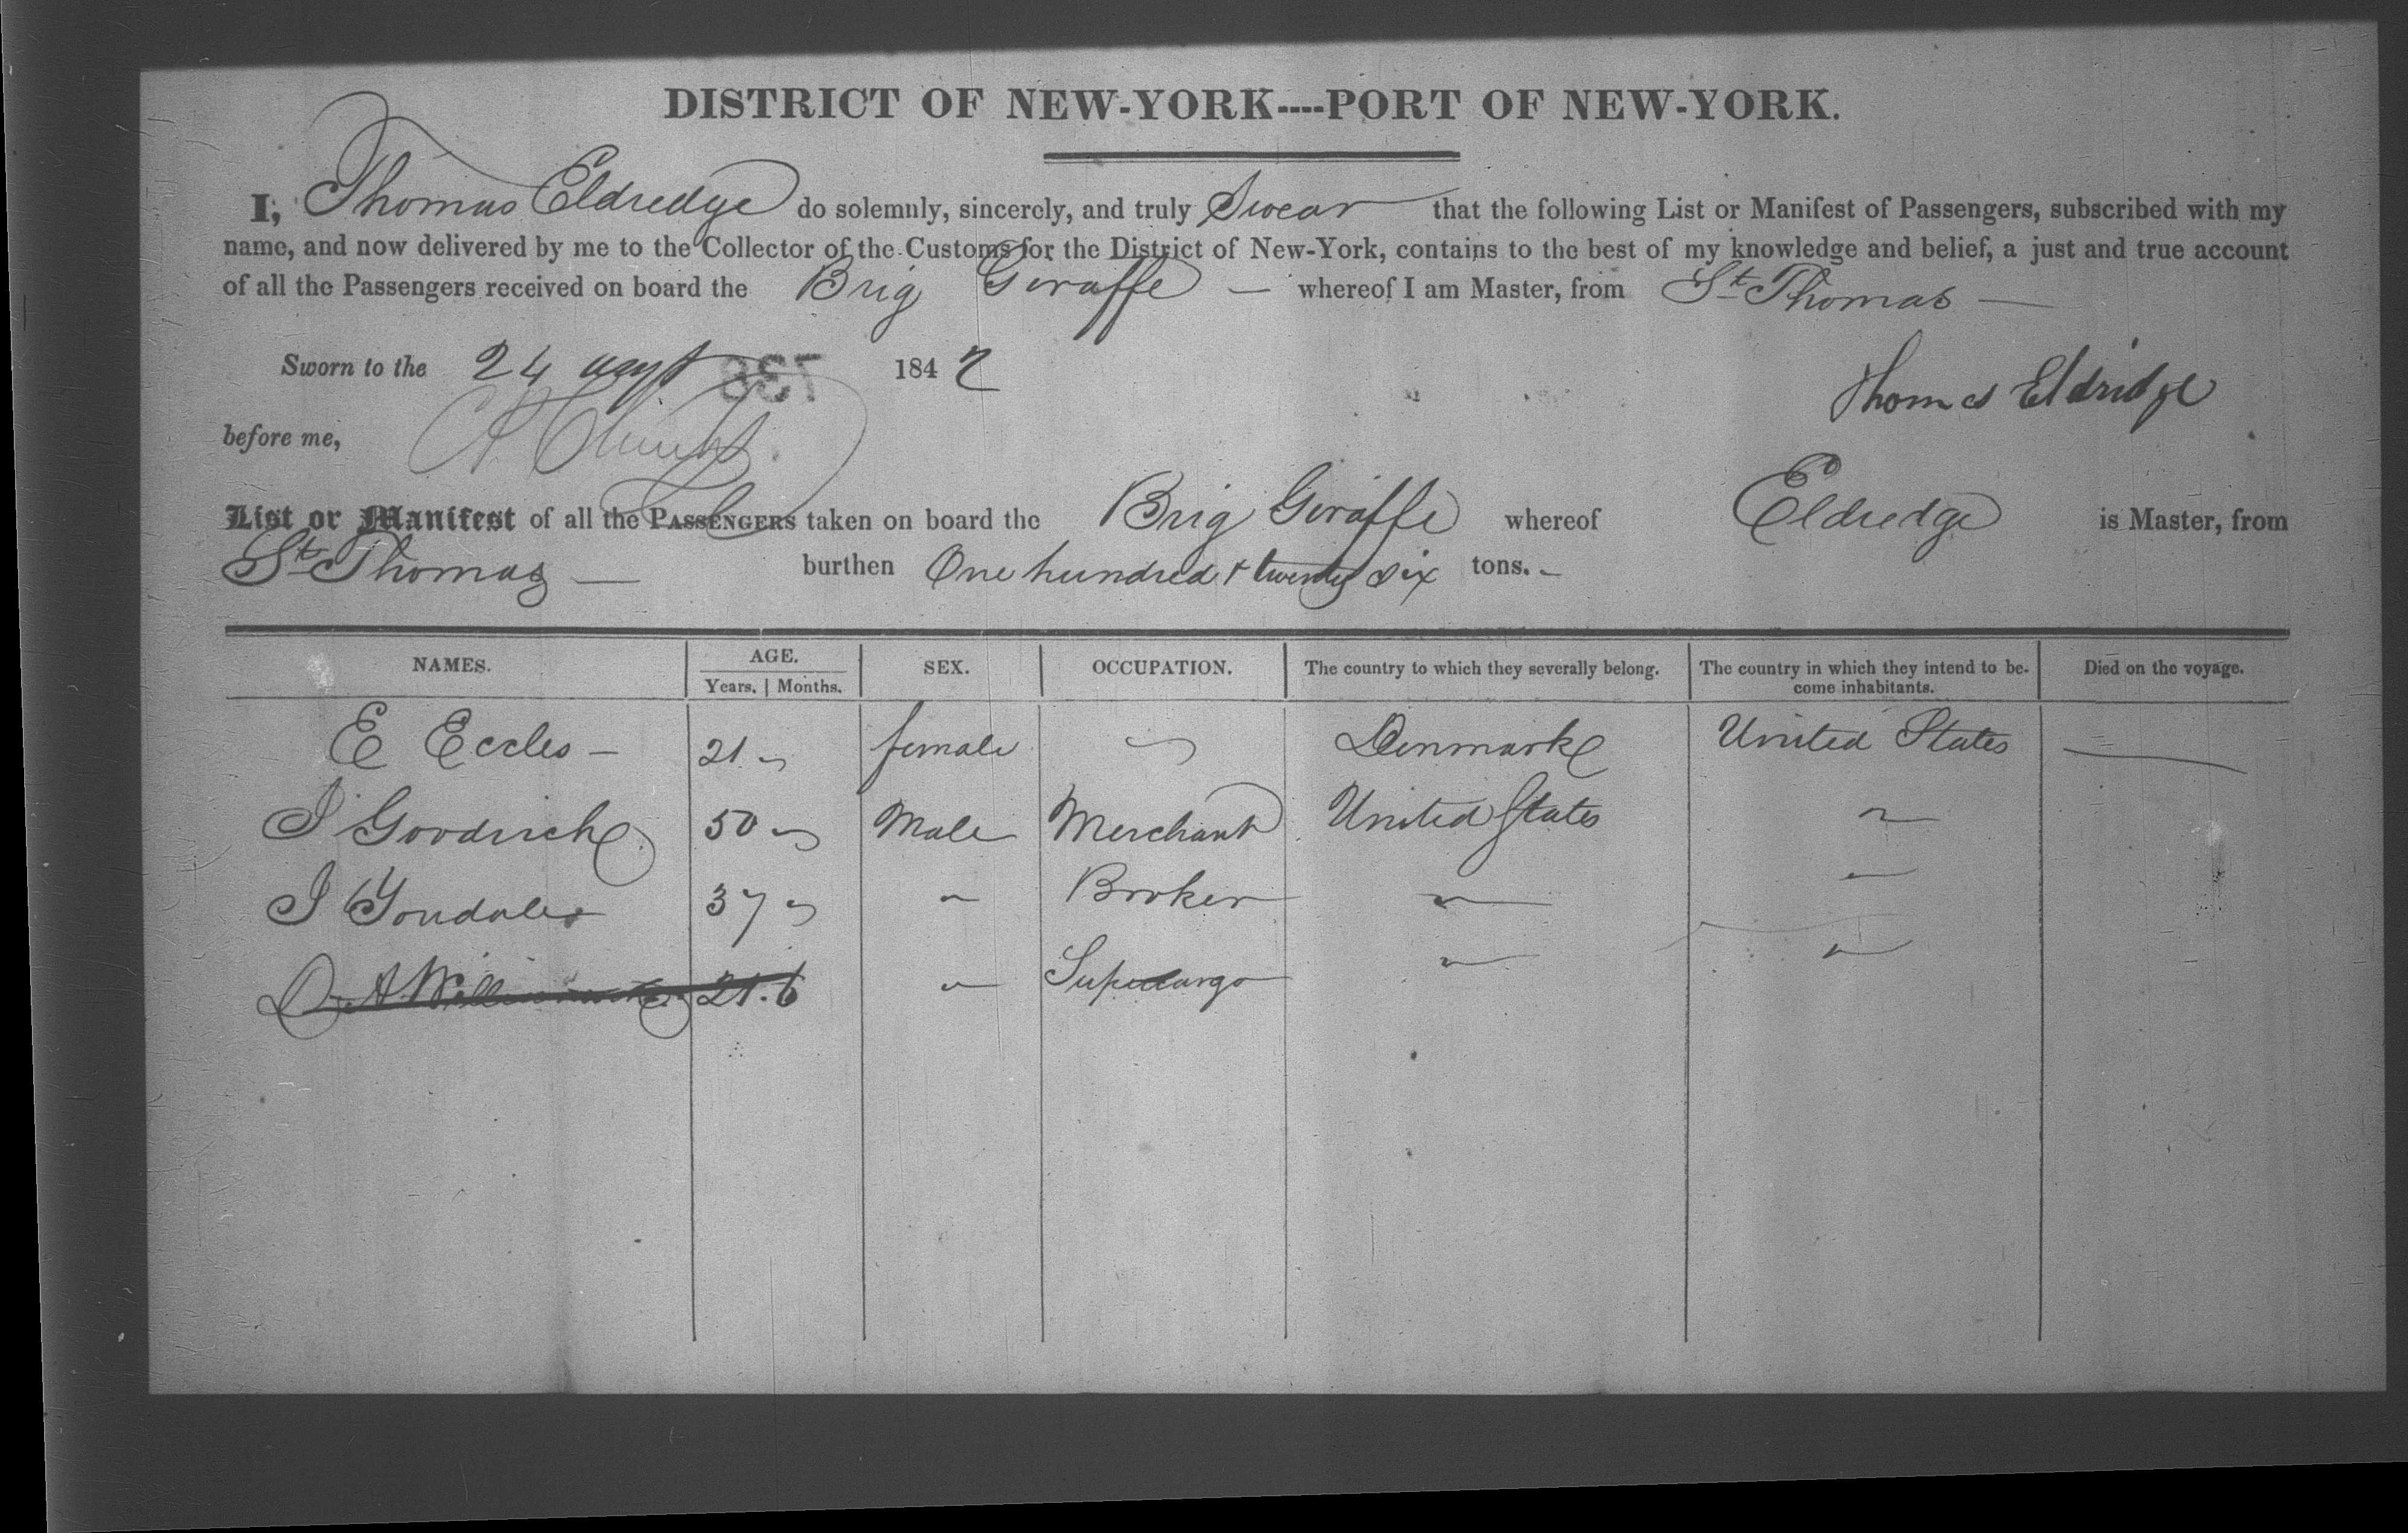 DISTRICT OF NEW-YORK----PORT OF NEW-YORK.
I, Thomas Eldredge do solemnly, sincerely, and truly Swear that the following List or Manifest of Passengers, subscribed with my
name, and now delivered by me to the Collector of the Customs for the District of New-York, contains to the best of my knowledge and belief, a just and true account
of all the Passengers received on board the Brig Giraffe — whereof I am Master, from St Thomas —
Sworn to the 24 augt 1842
Thomas Eldridge
before me,
List or Manifest of all the PASSENGERS taken on board the Brig Giraffe whereof Eldredge is Master, from
St Thomas — burthen One hundred & twenty six tons. -
NAMES. AGE. SEX. OCCUPATION. The country to which they severally belong. The country in which they intend to be- Died on the voyage.
Years. | Months. come inhabitants.
E Eccles - 21 " female " Denmark United States —
J Goodrich 50 " Male Merchant United States "
J 37 " " Broker " "
21.6 " Supercargo " "